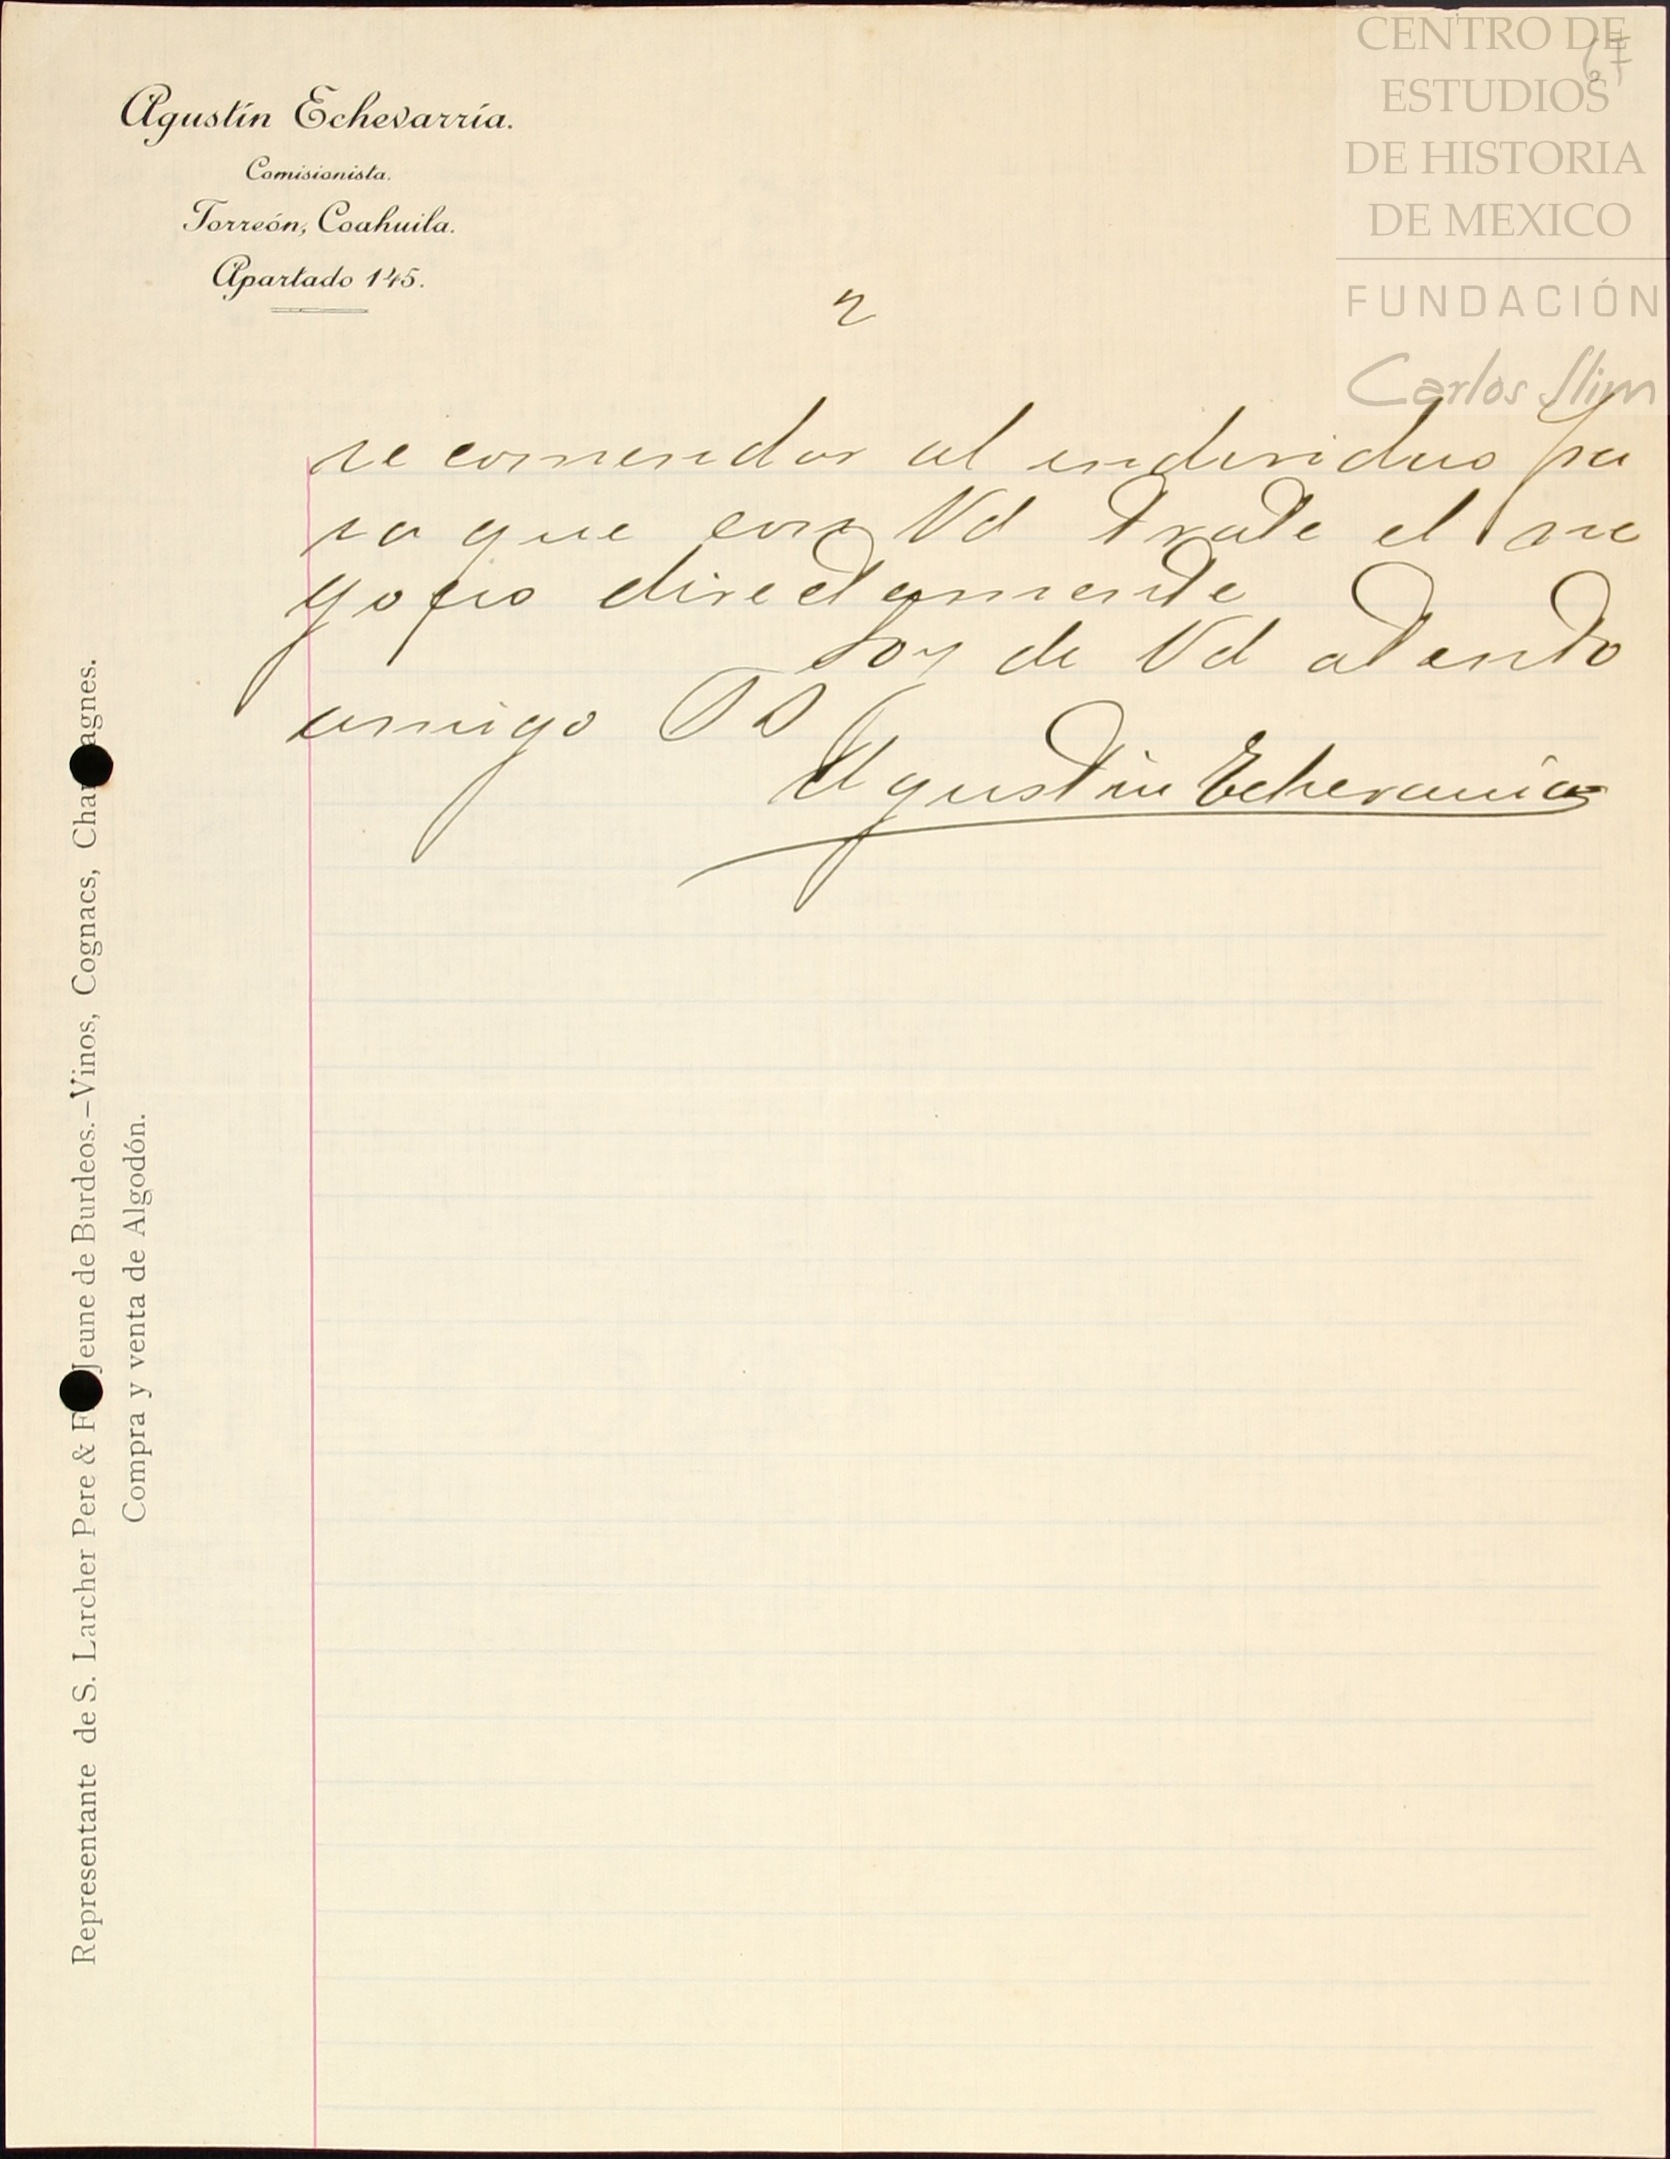 CENTRO DE
ESTUDIOS
DE HISTORIA
DE MEXICO
FUNDACIÓN
Carlos Slim
67
Agustín Echevarría.
Comisionista.
Torreón, Coahuila.
Apartado 145.
2
recomendar al individuo pa
ra que con Vd trate el ne
gocio directamente
Soy de Vd atento
amigo SS
Agustin Echevarria
Representante de S. Larcher Pere & F Jeune de Burdeos.—Vinos, Cognacs, Cha agnes.
Compra y venta de Algodón.